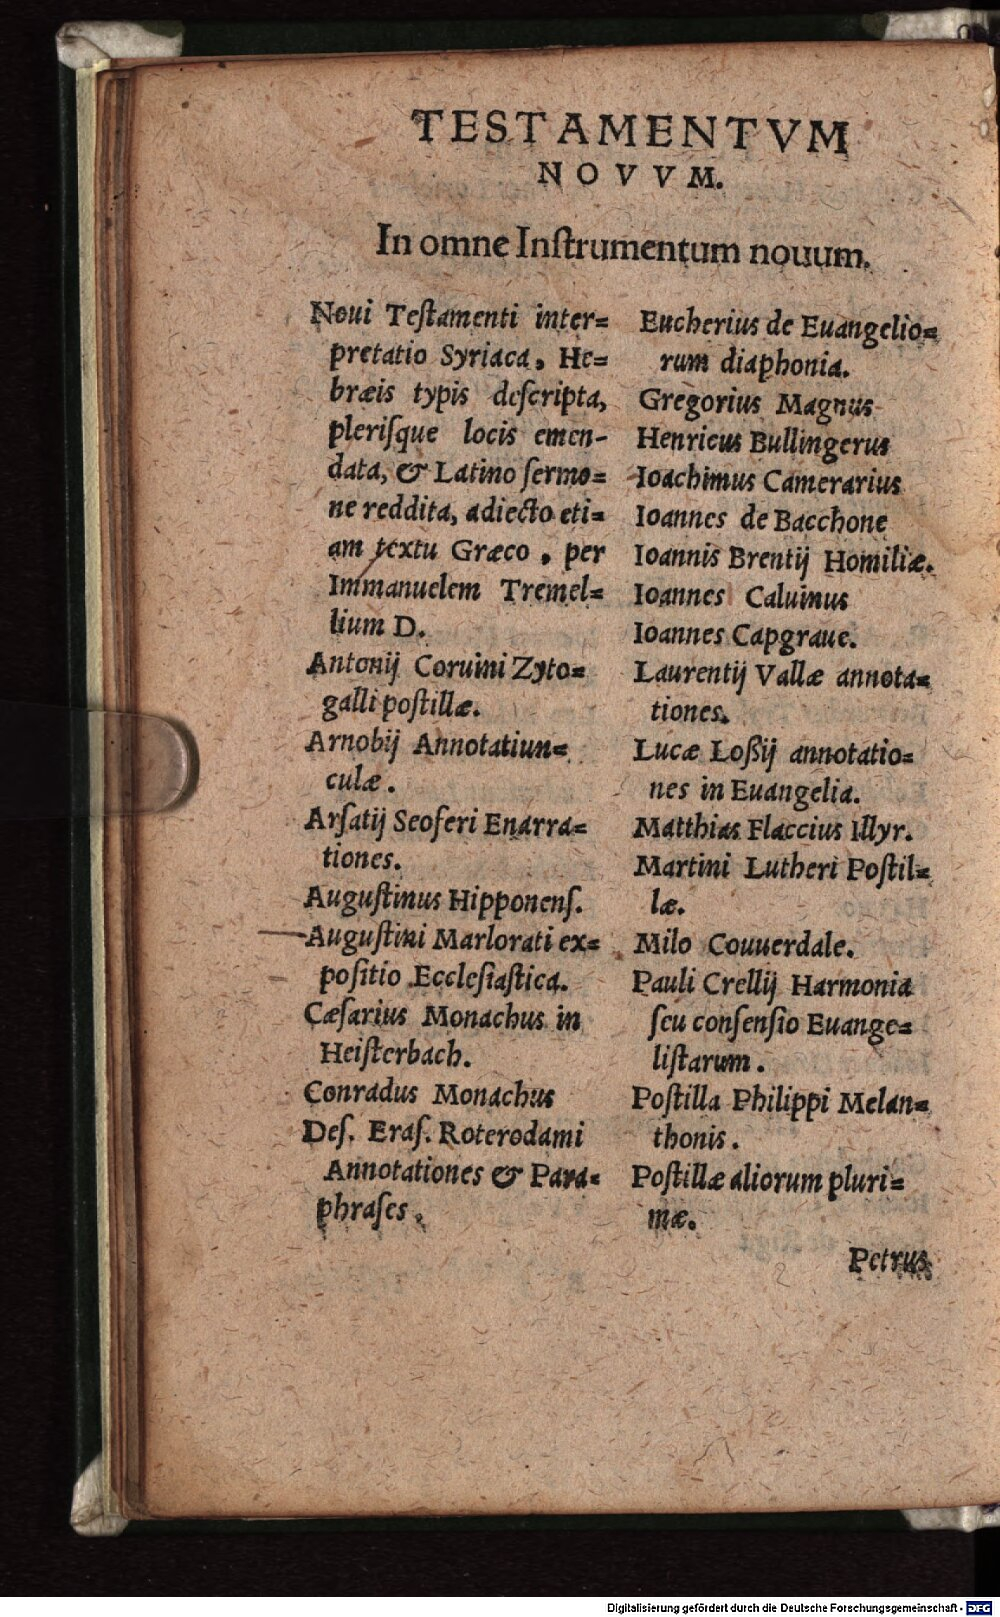 TESTAMENTVM
NOVVM.
In omne Inſtrumentum nouum.
Noui Teſtamenti inter=
pretatio Syriaca, He=
bræis typis deſcripta,
pleriſque locis emen-
data, & Latino ſermo=
ne reddita, adiecto eti=
am textu Græco, per
Immanuelem Tremel=
lium D.
Antonij Coruini Zyto=
galli poſtillæ.
Arnobij Annotatiun=
culæ.
Arſatij Seoferi Enarra=
tiones.
Auguſtinus Hipponenſ.
Auguſtini Marlorati ex=
poſitio Eccleſiaſtica.
Cæſarius Monachus in
Heiſterbach.
Conradus Monachus
Deſ. Eraſ. Roterodami
Annotationes & Para=
phraſes.
Eucherius de Euangelio=
rum diaphonia.
Gregorius Magnus
Henricus Bullingerus
Ioachimus Camerarius
Ioannes de Bacchone
Ioannis Brentij Homiliæ.
Ioannes Caluinus
Ioannes Capgraue.
Laurentij Vallæ annota=
tiones.
Lucæ Loßij annotatio=
nes in Euangelia.
Matthias Flaccius Illyr.
Martini Lutheri Poſtil=
læ.
Milo Couuerdale.
Pauli Crellij Harmonia
ſeu conſenſio Euange=
liſtarum.
Poſtilla Philippi Melan=
thonis.
Poſtillæ aliorum pluri=
mæ.
Petrus
Digitalisierung gefördert durch die Deutsche Forschungsgemeinschaft - DFG